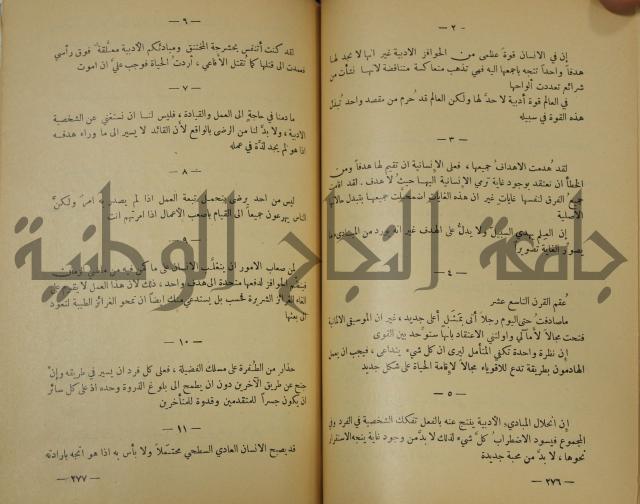 - ٢ -
إن في الانسان قوة عظمى من الحوافز الادبية غير انها لا تجد لها
هدفاً واحداً تتجه باجمعها اليه فهي تذهب متعاكسة متناقضة لانها نشأت من
شرائع تعددت ألواحها
في العالم قوة أدبية لا حد لها ولكن العالم قد حُرم من مقصد واحد تُبذل
هذه القوة في سبيله
— ٣ —
لقد هُدمت الاهداف جميعها، فعلى الإنسانية ان تقيم لها هدفاً ومن
الخطأ ان نعتقد بوجود غاية ترمي الإنسانية اليها حيث لا هدف. لقد اقامت
جميع الفرق لنفسها غايات غير ان هذه الغايات اضمحلّت جميعها بفقد
الأصلية
إن العلم يهدي السبيل ولا يدلّ على الهدف غير انه يورد من المبادئ ما
يصوّر الغاية تصويراً
— ٤ —
عُقم القرن التاسع عشر
ما صادفتُ حتى اليوم رجلاً أتى بمَثَل أعلى جديد، غير ان الموسيقى الالمانية
فتحت مجالاً لآمالي واولتني الاعتقاد بأنها ستوحد بين القوى
إن نظرة واحدة تكفي المتأمل ليرى ان كل شيء يتداعى، فيجب ان يعمل
الهادمون بطريقة تدع للاقوياء مجالاً لإقامة الحياة على شكل جديد
— ٥ —
إن انحلال المبادئ الادبية ينتج عنه بالفعل تفكك الشخصية في الفرد وفي
المجموع فيسود الاضطراب كلَّ شيء لذلك لا بدّ من وجود غاية يتجه الاستقرار
نحوها، لا بدّ من محبة جديدة
— ٢٧٦ —
— ٦ —
لقد كنت أتنفس بحشرجة المختنق ومبادئكم الادبية معلّقة فوق رأسي
فعمدت الى قتلها كما تُقتل الافاعي، أردت الحياة فوجب عليّ ان اموت
— ٧ —
ما دمنا في حاجةٍ الى العمل والقيادة، فليس لنا ان نستغني عن الشخصية
الادبية، ولا بدّ لنا من الرضى بالواقع لأن القائد لا يسير الى ما وراء هدفه
اذا هو لم يجد لذّة في عمله
— ٨ —
ليس من احد يرضى بتحمل تبعة العمل اذا لم يصدر به امر، ولكنّ
الناس يهرعون جميعاً الى القيام بأصعب الاعمال اذا امرتهم انت
— ٩ —
لمن صعاب الامور ان يتغلّب الانسان على ما كمن فيه من ماضي
فينظّم الحوافز لدفعها متحدة الى هدف واحد، ذلك لان هذا العمل لا يقوم على
الغاء الغرائز الشريرة فحسب بل يستدعي منك ايضاً ان تمحو الغرائز الطيبة لتعود
الى بعثها
— ١٠ —
حذار من الطفرة على مسلك الفضيلة، فعلى كل فرد ان يسير في طريقه وإن
جنح عن طريق الآخرين دون ان يطمح الى بلوغ الذروة وحده اذ على كل سائر
ان يكون جسراً للمتقدمين وقدوة للمتأخرين
— ١١ —
قد يصبح الانسان العادي السطحي محتمَلاً ولا بأس به اذا هو اتجه بارادته
— ٢٧٧ —
جامعة النجاح الوطنية